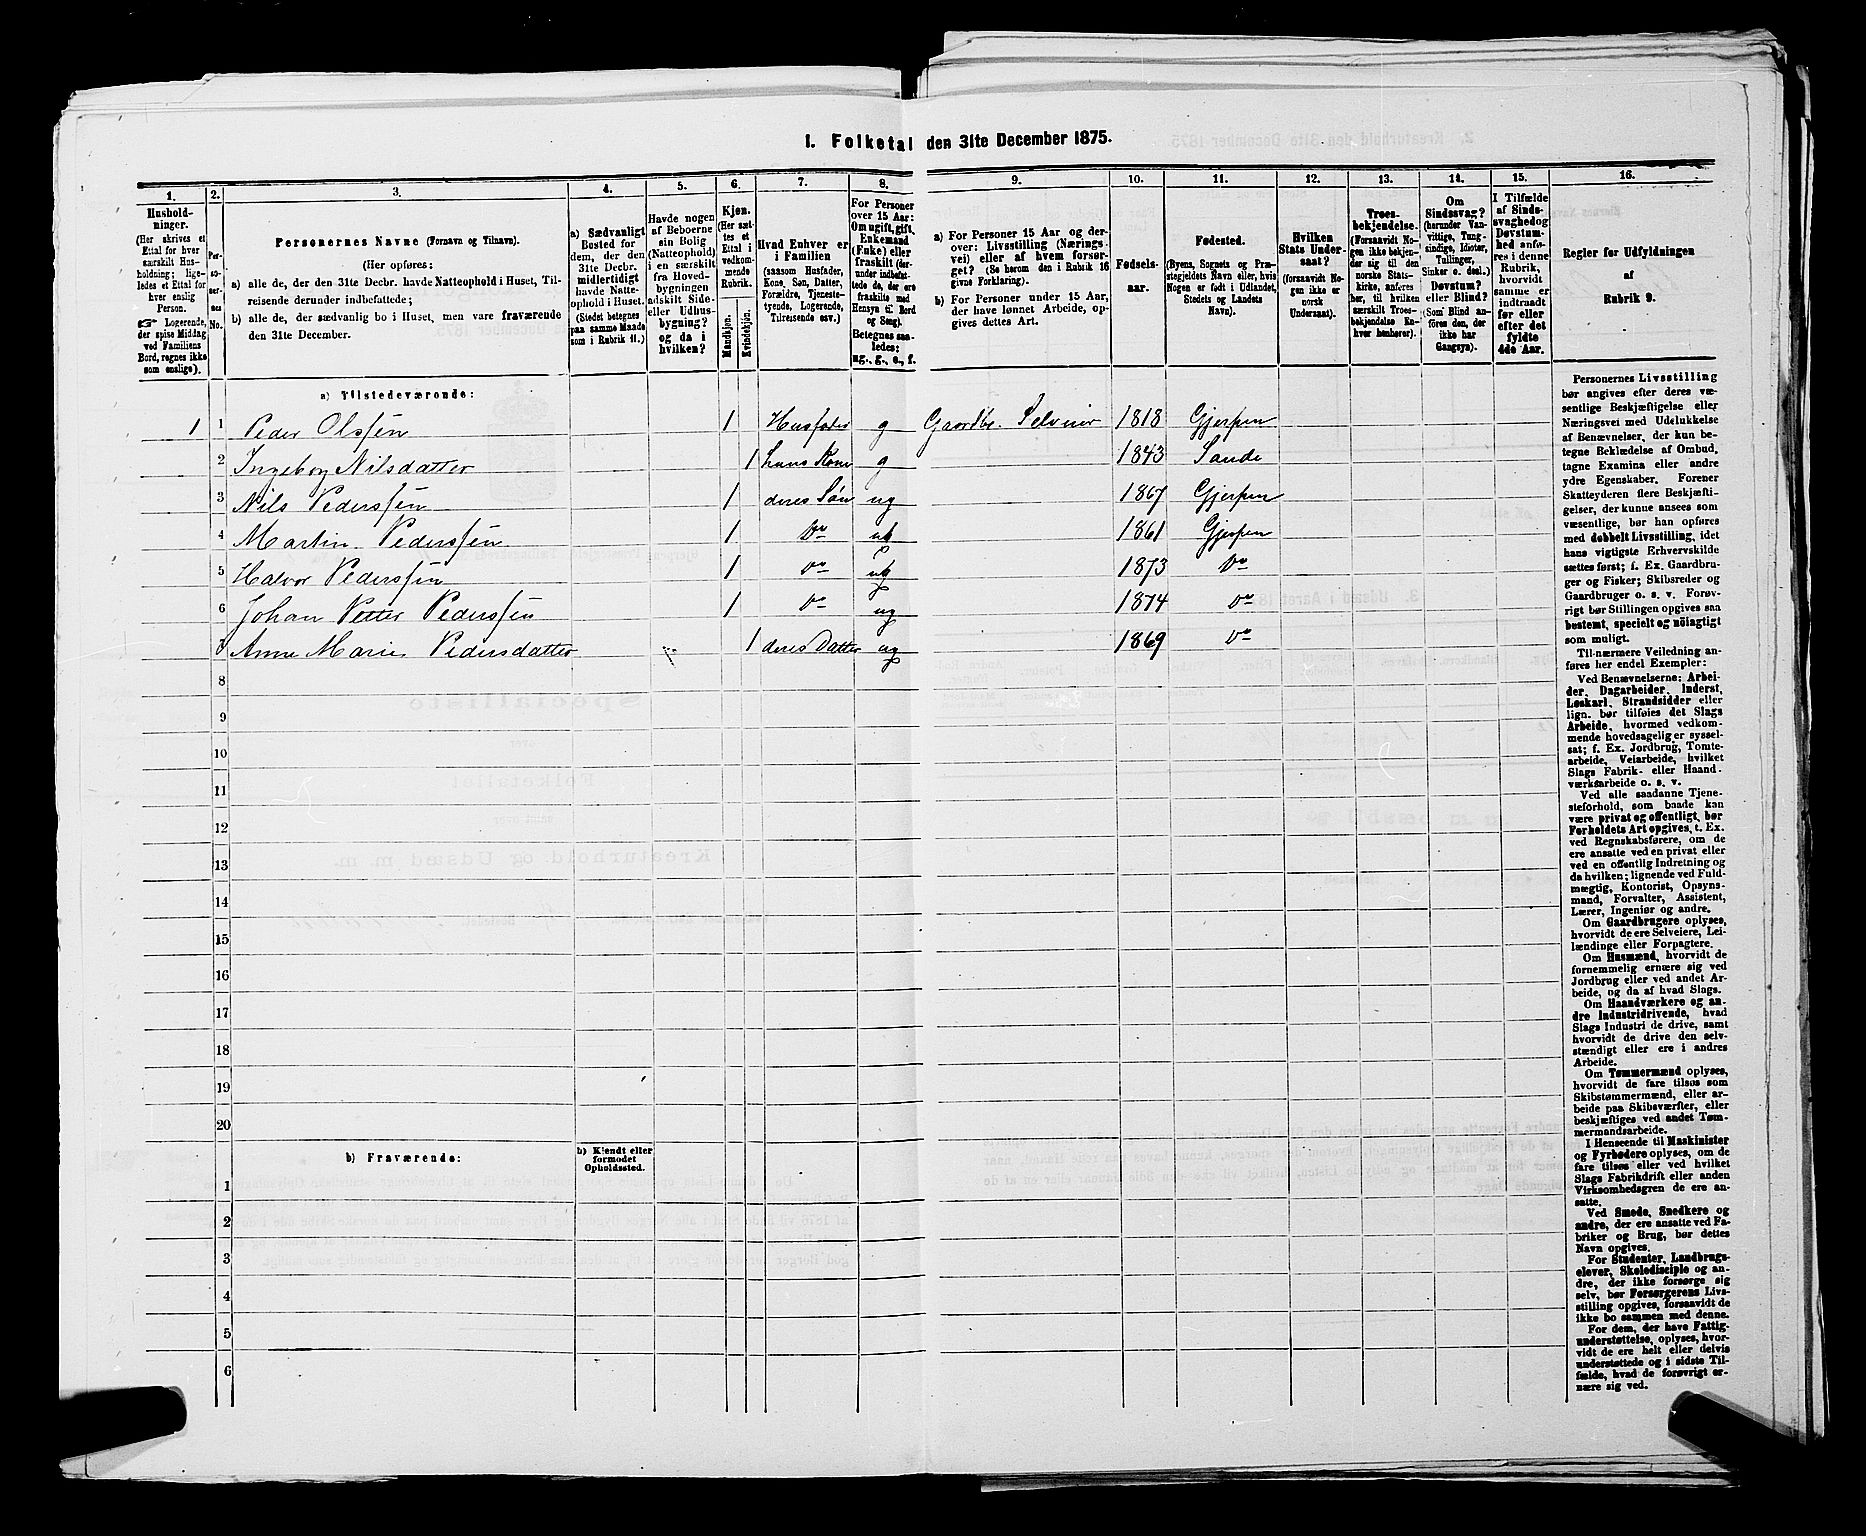 1. Folketal den 31te December 1875.
1. 2. 3. 4. 5. 6. 7. 8. 9. 10. 11. 12. 13. 14. 15. 16.
Hushold-
ninger.
(Her skrives et
Ettal for hver
særskilt Hus-
holdning; lige-
ledes et Ettal for
hver enslig
Person.
☞ Logerende,
der spise Middag
ved Familiens
Bord, regnes ikke
som enslige).
Personernes Navne (Fornavn og Tilnavn).
(Her opføres:
a) alle de, der den 31te Decbr. havde Natteophold i Huset, Til-
reisende derunder indbefattede;
b) alle de, der sædvanlig bo i Huset, men vare fraværende
den 31te December.
a) Sædvanligt
Bosted for
dem, der den
31te Decbr.
midlertidigt
havde Natte-
ophold i Huset.
(Stedet betegnes
paa samme Maade
som i Rubrik 11.)
Havde nogen
af Beboerne
sin Bolig
(Natteophold)
i en særskilt
fra Hoved-
bygningen
adskilt Side-
eller Udhus-
bygning?
og da i
hvilken?
Kjøn.
(Her sæt-
tes et
Ettal i
vedkom-
mende
Rubrik.
Mandkjøn.
Kvindekjøn.
Hvad Enhver er
i Familien
(saasom Husfader,
Kone, Søn, Datter,
Forældre, Tjeneste-
tyende, Logerende,
Tilreisende osv.)
For Personer
over 15 Aar:
Om ugift, gift,
Enkemand
(Enke) eller
fraskilt (der-
under indbefat-
tede de, der ere
fraskilte med
Hensyn til Bord
og Seng).
Betegnes saa-
ledes:
ug., g., e., f.
a) For Personer 15 Aar og der-
over: Livsstilling (Nærings-
vei) eller af hvem forsør-
get? (Se herom den i Rubrik 16
givne Forklaring).
b) For Personer under 15 Aar,
der have lønnet Arbeide, op-
gives dettes Art.
Fødsels-
aar.
Fødested.
(Byens, Sognets og Præ-
stegjeldets Navn eller, hvis
Nogen er født i Udlandet,
Stedets og Landets
Navn).
Hvilken
Stats Under-
saat?
(forsaavidt No-
gen ikke er
norsk
Undersaat).
Troes-
bekjendelse.
(Forsaavidt No-
gen ikke bekjen-
der sig til den
norske Stats-
kirke, anføres
her, til hvilken
særskilt Troes-
bekjendelse En-
hver henhører).
Om
Sindssvag?
(herunder Van-
vittige, Tung-
sindige, Idioter,
Tullinger,
Sinker o. desl.)
Døvstum?
eller Blind?
(Som Blind an-
føres den, der
ikke har
Gangsyn).
I Tilfælde
af Sinds-
svaghed og
Døvstum-
hed anfø-
res i denne
Rubrik,
hvorvidt
samme er
indtraadt
før eller
efter det
fyldte
4de Aar.
Regler for Udfyldningen
af
Rubrik 9.
a) Tilstedeværende:
1 1 Peder Olssen 1 Husfader g Gaardbr. Selveier 1818 Gjerpen
2 Ingeborg Nilsdatter 1 hans Kone g 1843 Sande
3 Nils Pederssen 1 deres Søn ug 1867 Gjerpen
4 Martin Pederssen 1 Do ug 1861 Gjerpen
5 Halvor Pederssen 1 Do ug 1873 Do
6 Johan Petter Pederssen 1 Do ug 1874 Do
7 Anne Marie Pedersdatter 1 deres Datter ug 1869 Do
8
9
10
11
12
13
14
15
16
17
18
19
20
b) Fraværende:
b) Kjendt eller
formodet
Opholdssted.
1
2
3
4
5
6
Personernes Livsstilling
bør angives efter deres væ-
sentlige Beskjæftigelse eller
Næringsvei med Udelukkelse
af Benævnelser, der kun be-
tegne Beklædelse af Ombud,
tagne Examina eller andre
ydre Egenskaber. Forener
Skatteyderen flere Beskjæfti-
gelser, der kunne ansees som
væsentlige, bør han opføres
med dobbelt Livsstilling, idet
hans vigtigste Erhvervskilde
sættes først; f. Ex. Gaardbru-
ger og Fisker; Skibsreder og
Gaardbruger o. s. v. Forøv-
rigt bør Stillingen opgives saa
bestemt, specielt og nøiagtigt
som muligt.
Til nærmere Veiledning an-
føres her endel Exempler:
Ved Benævnelserne: Arbei-
der, Dagarbeider, Inderst,
Løskarl, Strandsidder eller
lign. bør tilføies det Slags
Arbeide, hvormed vedkom-
mende hovedsagelig er syssel-
sat; f. Ex. Jordbrug, Tomte-
arbeide, Veiarbeide, hvilket
Slags Fabrik- eller Haand-
værksarbeide o. s. v.
Ved alle saadanne Tjene-
steforhold, som baade kan
være privat og offentligt, bør
Forholdets Art opgives, t. Ex.
ved Regnskabsførere, om de
ere ansatte ved en privat eller
ved en offentlig Indretning og
da hvilken; lignende ved Fuld-
mægtig, Kontorist, Opsyns-
mand, Forvalter, Assistent,
Lærer, Ingeniør og andre.
Om Gaardbrugere oplyses,
hvorvidt de ere Selveiere, Lei-
lændinge eller Forpagtere.
Om Husmænd, hvorvidt de
fornemmelig ernære sig ved
Jordbrug eller ved andet Ar-
beide, og da af hvad Slags.
Om Haandværkere og an-
dre Industridrivende, hvad
Slags Industri de drive, samt
hvorvidt de drive den selv-
stændigt eller ere i andres
Arbeide.
Om Tømmermænd oplyses,
hvorvidt de fare tilsøs som
Skibstømmermænd, eller ar-
beide paa Skibsværfter, eller
beskjæftiges ved andet Tøm-
mermandsarbeide.
I Henseende til Maskinister
og Fyrbødere oplyses, om de
fare tilsøs eller ved hvilket
Slags Fabrikdrift eller anden
Virksomhedsgren de ere an-
satte.
Ved Smede, Snedkere og
andre, der ere ansatte ved Fa-
briker og Brug, bør dettes
Navn opgives.
For Studenter, Landbrugs-
elever, Skoledisciple og an-
dre, der ikke forsørge sig
selv, bør Forsørgerens Livs-
stilling opgives, forsaavidt de
ikke bo sammen med denne.
For dem, der have Fattig-
understøttelse, oplyses, hvor-
vidt de ere helt eller delvis
understøttede og i sidste Til-
fælde, hvad de forøvrigt er-
nære sig ved.